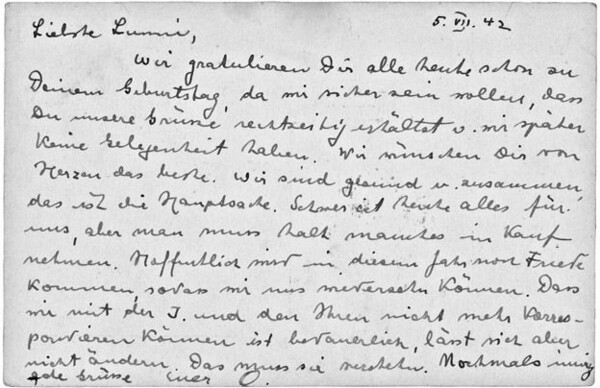 5. VII. 42
Liebste Lummi,
Wir gratulieren Dir alle heute schon zu
Deinem Geburtstag, da wir sicher sein wollen, dass
Du unsere Grüsse rechtzeitig erhältst u. wir später
keine Gelegenheit haben. Wir wünschen Dir von
Herzen das beste. Wir sind gesund u. zusammen,
das ist die Hauptsache. Schwer ist heute alles für
uns, aber man muss halt manches in Kauf
nehmen. Hoffentlich wird in diesem Jahr noch Friede
kommen, sodass wir uns wiedersehn können. Dass
wir mit der I. und den Ihren nicht mehr korres-
pondieren können ist bedauerlich, lässt sich aber
nicht ändern. Das muss sie verstehn. Nochmals innig
Grüsse